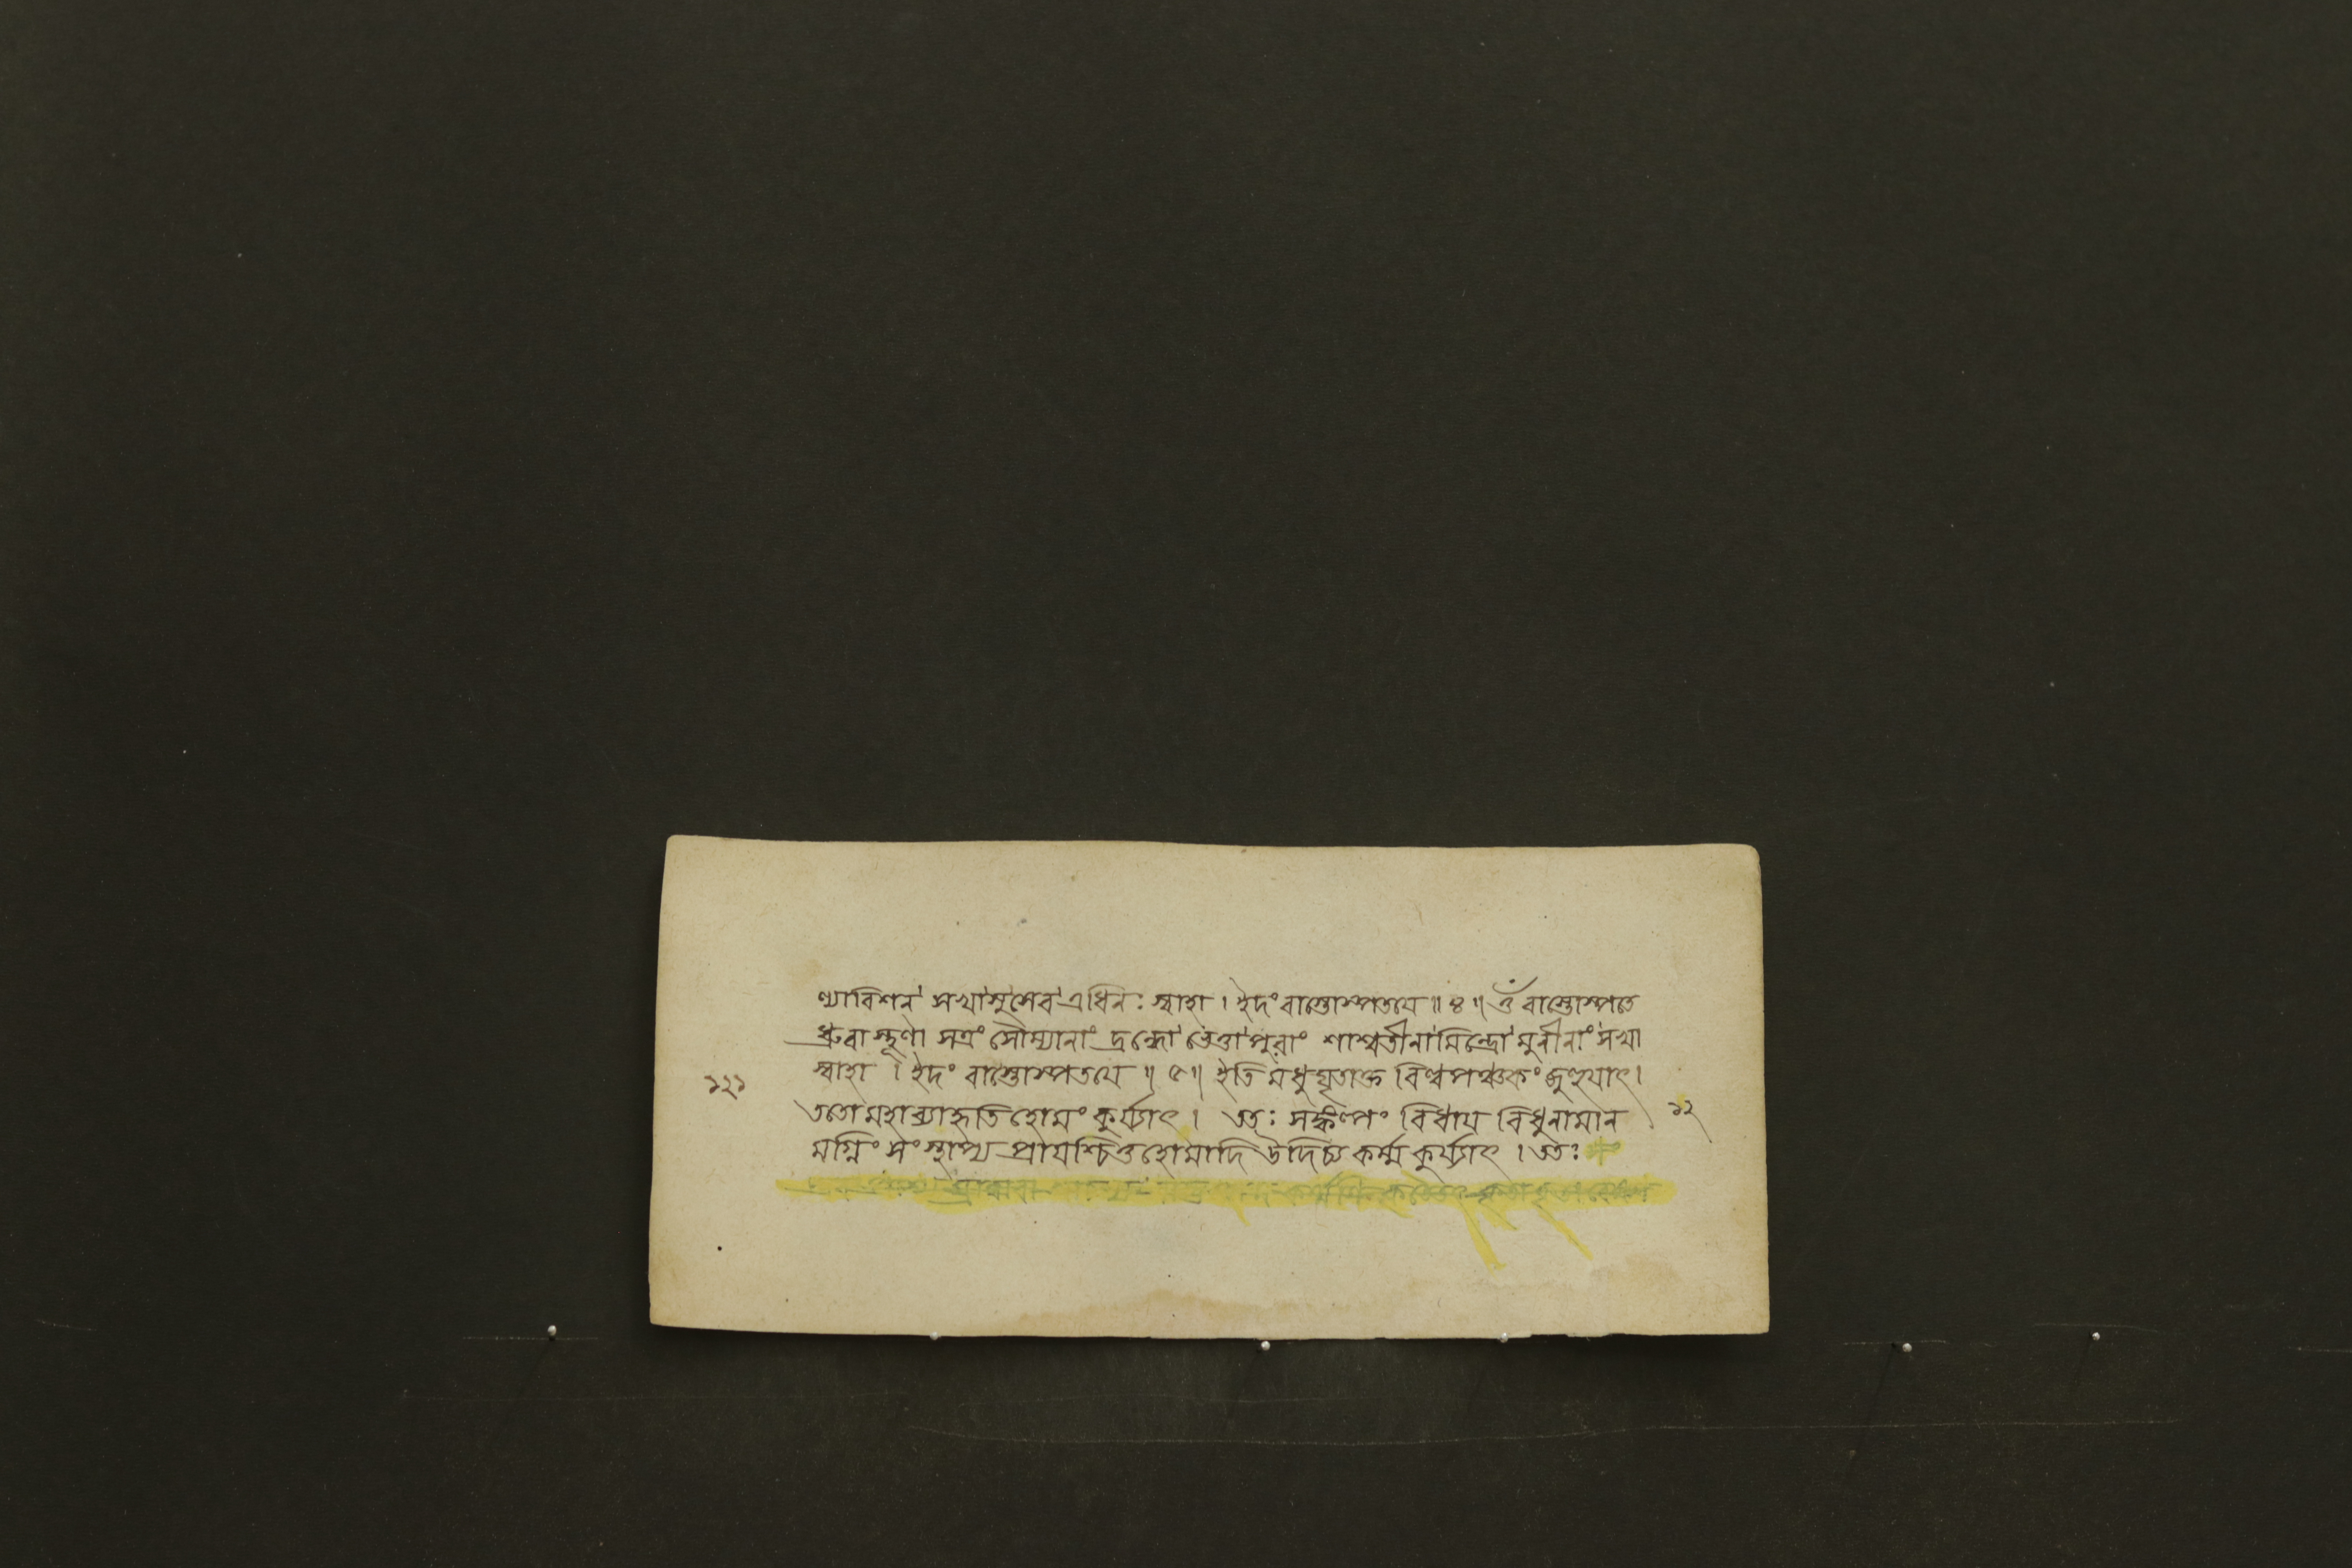 ণ্যাবিশন্ সখাসুসেব এধিনঃ স্বাহা । ইদং বাস্তোস্পতয়ে ॥ ৪ ॥ ওঁ বাস্তোস্পতে
ধ্রুবা স্থূণা সত্রং সৌম্যানাং দ্রপ্সো ভেত্তা পুরাং শাশ্বতীনামিন্দ্রো মুনীনাং সখা
স্বাহা । ইদং বাস্তোস্পতয়ে ॥ ৫ ॥ ইতি মধুঘৃতাক্ত বিল্বপঞ্চকং জুহুয়াৎ ।
১২১
ততো মহাব্যাহৃতি হোমং কুর্য্যাৎ । ততঃ সঙ্কল্পং বিধায় বিধুনামান
১২
মগ্নিং সংস্থাপ্য প্রায়শ্চিত্তহোমাদি উদিচ্য কর্ম্ম কুর্য্যাৎ । ততঃ